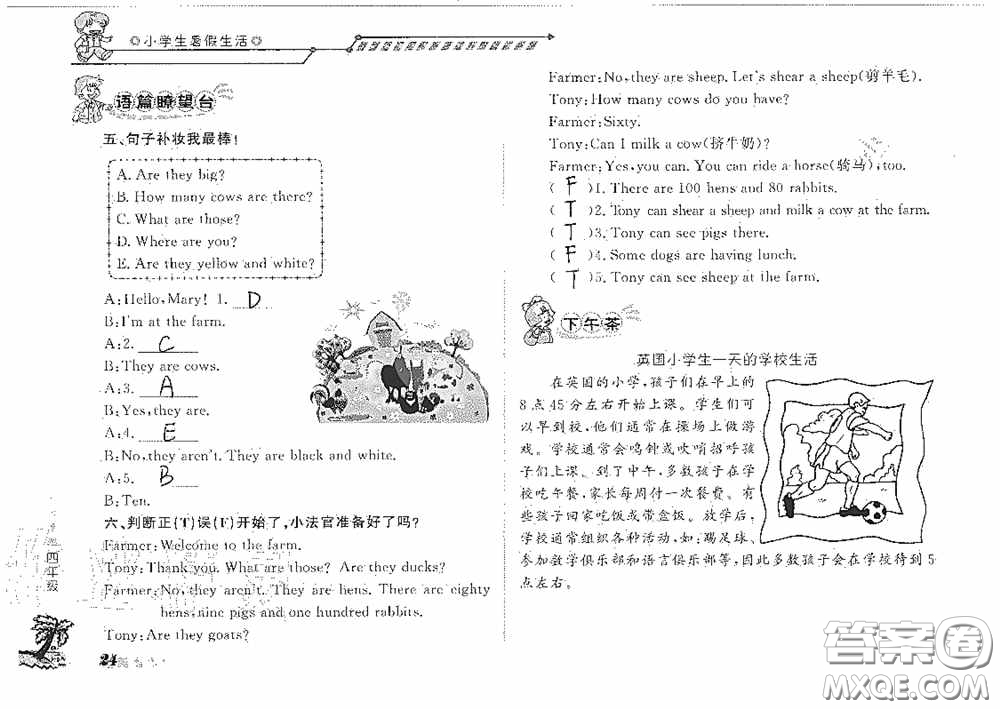 小学生暑假生活
语篇瞭望台
五、句子补妆我最棒!
A. Are they big?
B. How many cows are there?
C. What are those?
D. Where are you?
E. Are they yellow and white?
A:Hello,Mary! 1. D
B:I'm at the farm.
A:2. C
B:They are cows.
A:3. A
B:Yes,they are.
A:4. E
B:No,they aren't. They are black and white.
A:5. B
B:Ten.
六、判断正(T)误(F)开始了,小法官准备好了吗?
Farmer:Welcome to the farm.
Tony:Thank you. What are those? Are they ducks?
Farmer:No,they aren't. They are hens. There are eighty
hens,nine pigs and one hundred rabbits.
Tony:Are they goats?
四年级
24
Farmer:No,they are sheep. Let's shear a sheep(剪羊毛).
Tony:How many cows do you have?
Farmer:Sixty.
Tony:Can I milk a cow(挤牛奶)?
Farmer:Yes,you can. You can ride a horse(骑马),too.
( F )1. There are 100 hens and 80 rabbits.
( T )2. Tony can shear a sheep and milk a cow at the farm.
( T )3. Tony can see pigs there.
( F )4. Some dogs are having lunch.
( T )5. Tony can see sheep at the farm.
下午茶
英国小学生一天的学校生活
在英国的小学,孩子们在早上的
8点45分左右开始上课。学生们可
以早到校,他们通常在操场上做游
戏。学校通常会鸣钟或吹哨招呼孩
子们上课。到了中午,多数孩子在学
校吃午餐,家长每周付一次餐费。有
些孩子回家吃饭或带盒饭。放学后,
学校通常组织各种活动,如:踢足球、
参加数学俱乐部和语言俱乐部等,因此多数孩子会在学校待到5
点左右。
答案卷
MXQE.COM